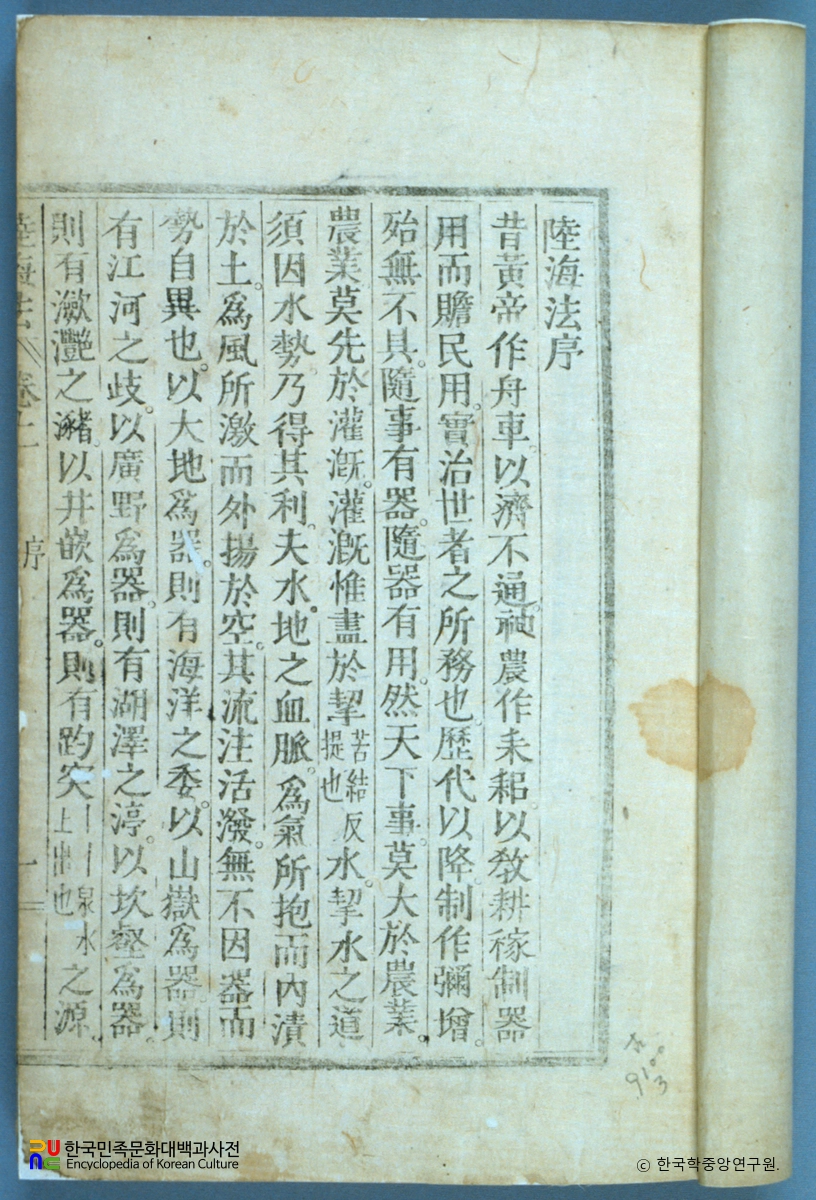 陸海法序
昔黃帝作舟車。以濟不通。神農作耒耜。以敎耕稼制器
用而贍民用。實治世者之所務也。歷代以降。制作彌增。
殆無不具。隨事有器。隨器有用。然天下事。莫大於農業。
農業莫先於灌漑。灌漑惟盡於挈苦結反提也水。挈水之道
須因水勢。乃得其利。夫水。地之血脈。爲氣所抱而內漬
於土。爲風所激而外揚於空。其流注活潑。無不因器而
勢自異也。以大地爲器。則有海洋之委。以山嶽爲器。則
有江河之歧。以廣野爲器。則有湖澤之渟。以坎壑爲器。
則有瀲灩之瀦。以井嵌爲器。則有趵突上出也泉水之源。
陸海法 卷上 序 一
古
9100
3
한국민족문화대백과사전
Encyclopedia of Korean Culture
ⓒ 한국학중앙연구원.